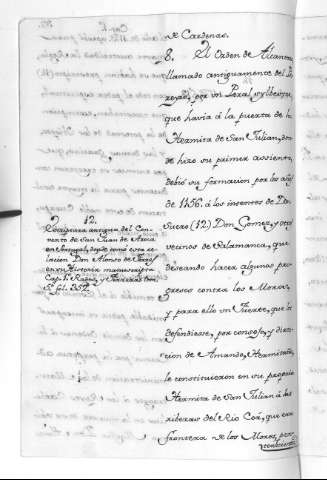 de Cardenas.
8. El Orden de Alcantara
llamado antiguamente del Pe
reyro, por un Peral sylbestre,
que havia á la puerta de la
Hermita de San Julian, don
de hizo su primer assiento,
debió su formacion por los años
de 1156. á los intentos de Dn.
Suero (12) Don Gomez, y otros
vecinos de Salamanca, que
deseando hacer algunos pro
gresos contra los Moros,
y para ello un Fuerte, que los
defendiesse, por consejo, y direc
cion de Amando, Hermitaño,
le constituieron en su propria
Hermita de San Julian á las
riberas del Rio Coá, que era
frontera de los Moros, per-
12.
antigua del Con
vento de San Juan de
en Portugal, donde consta esta re
lacion Don Alonso de
en su Historia manuscripta
Cap. 1º
fol. 352.